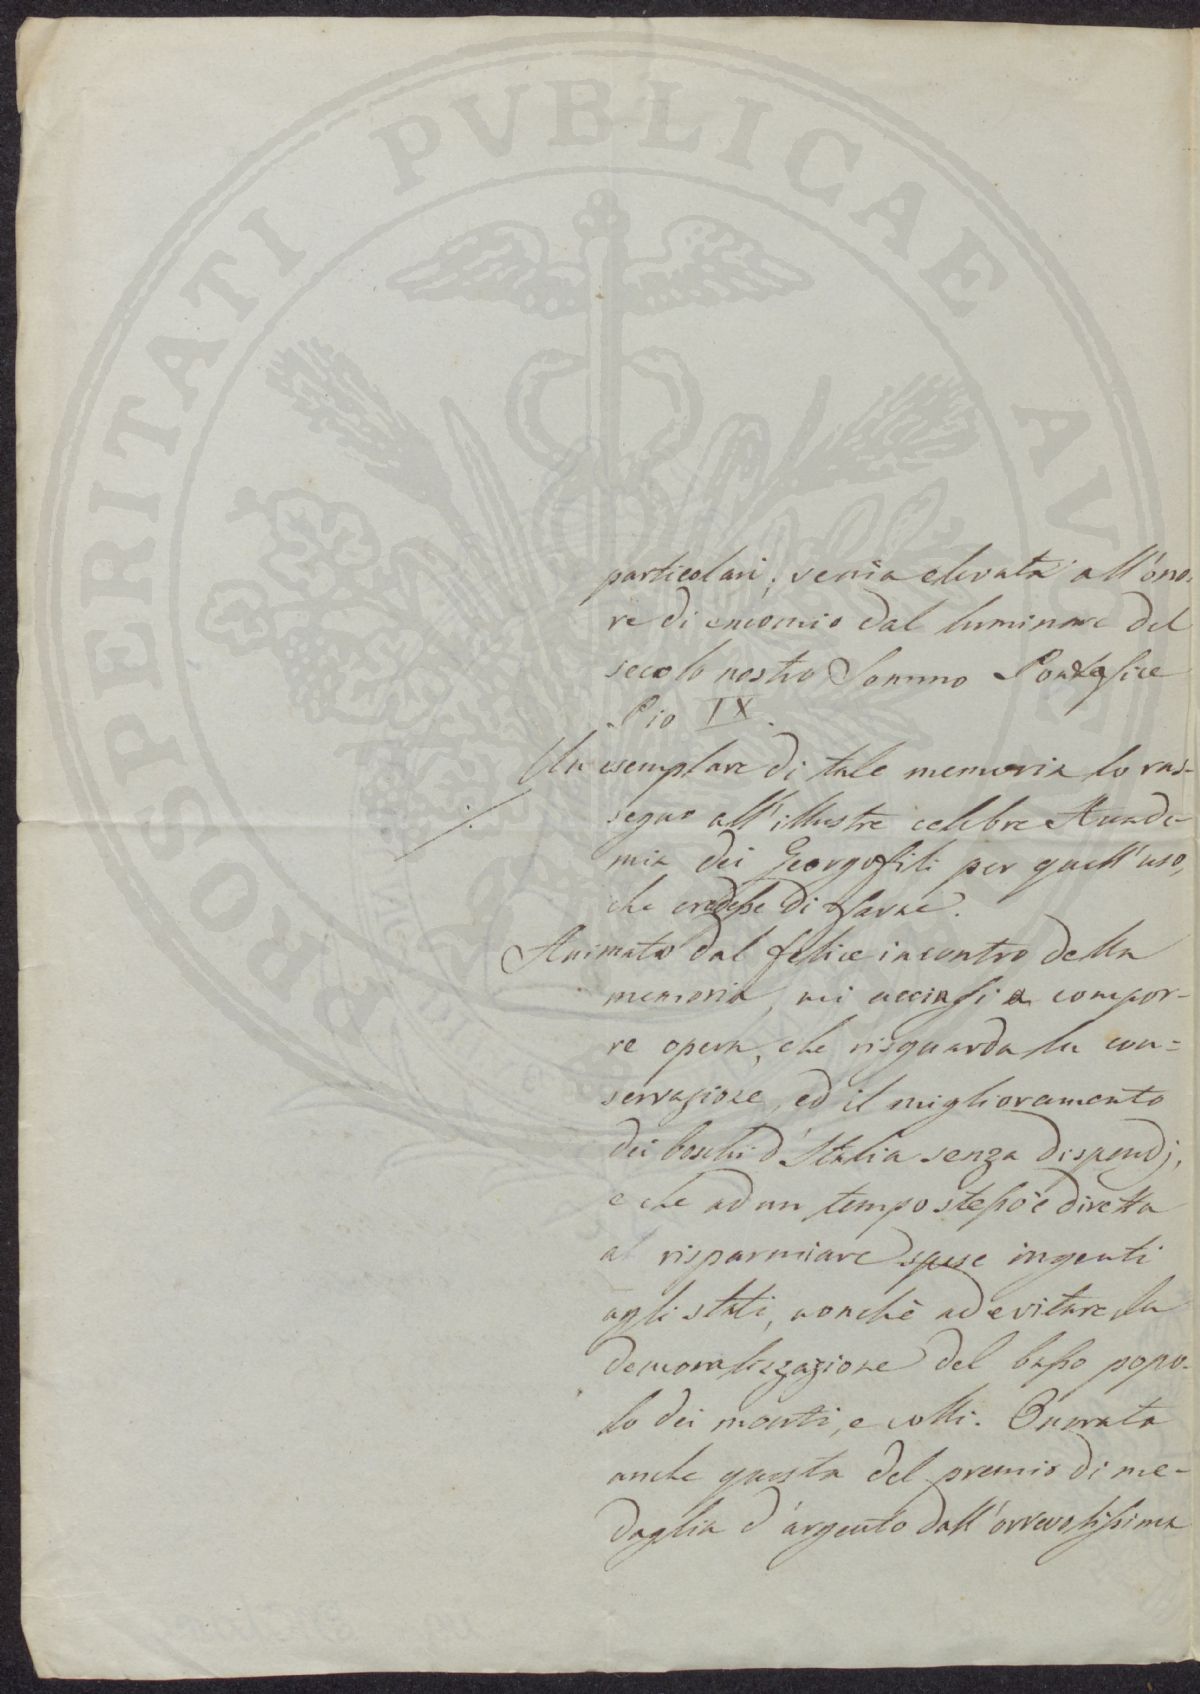 PROSPERITATI PVBLICAE AVGENDAE
particolari, venia elevata all'ono-
re di encomio dal luminare del
secolo nostro Sommo Pontefice
Pio IX.
Un esemplare di tale memoria lo ras-
segno all'illustre celebre Accade-
mia dei Georgofili per quell'uso,
che credesse di farne.
Animato dal felice incontro della
memoria, mi accinsi a compor-
re opera, che risguarda la con-
servazione, ed il miglioramento
dei boschi d'Italia senza dispendj,
e che ad un tempo stesso è diretta
a risparmiare spese ingenti
agli stati, nonchè ad evitare la
demoralizzazione del basso popo-
lo dei monti, e colli. Onorata
anche questa del premio di me-
daglia d'argento dall'orrevolissima